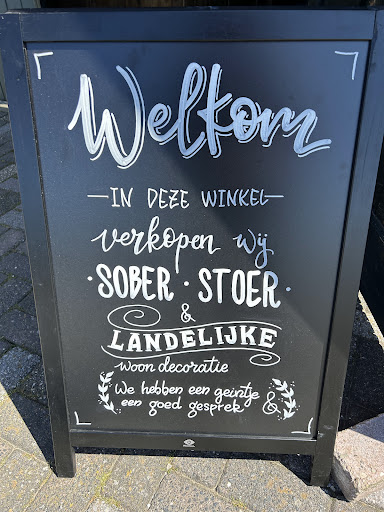 Welkom
IN DEZE WINKEL
verkopen wij
· SOBER · STOER ·
&
LANDELIJKE
woon decoratie
We hebben een geintje &
een goed gesprek